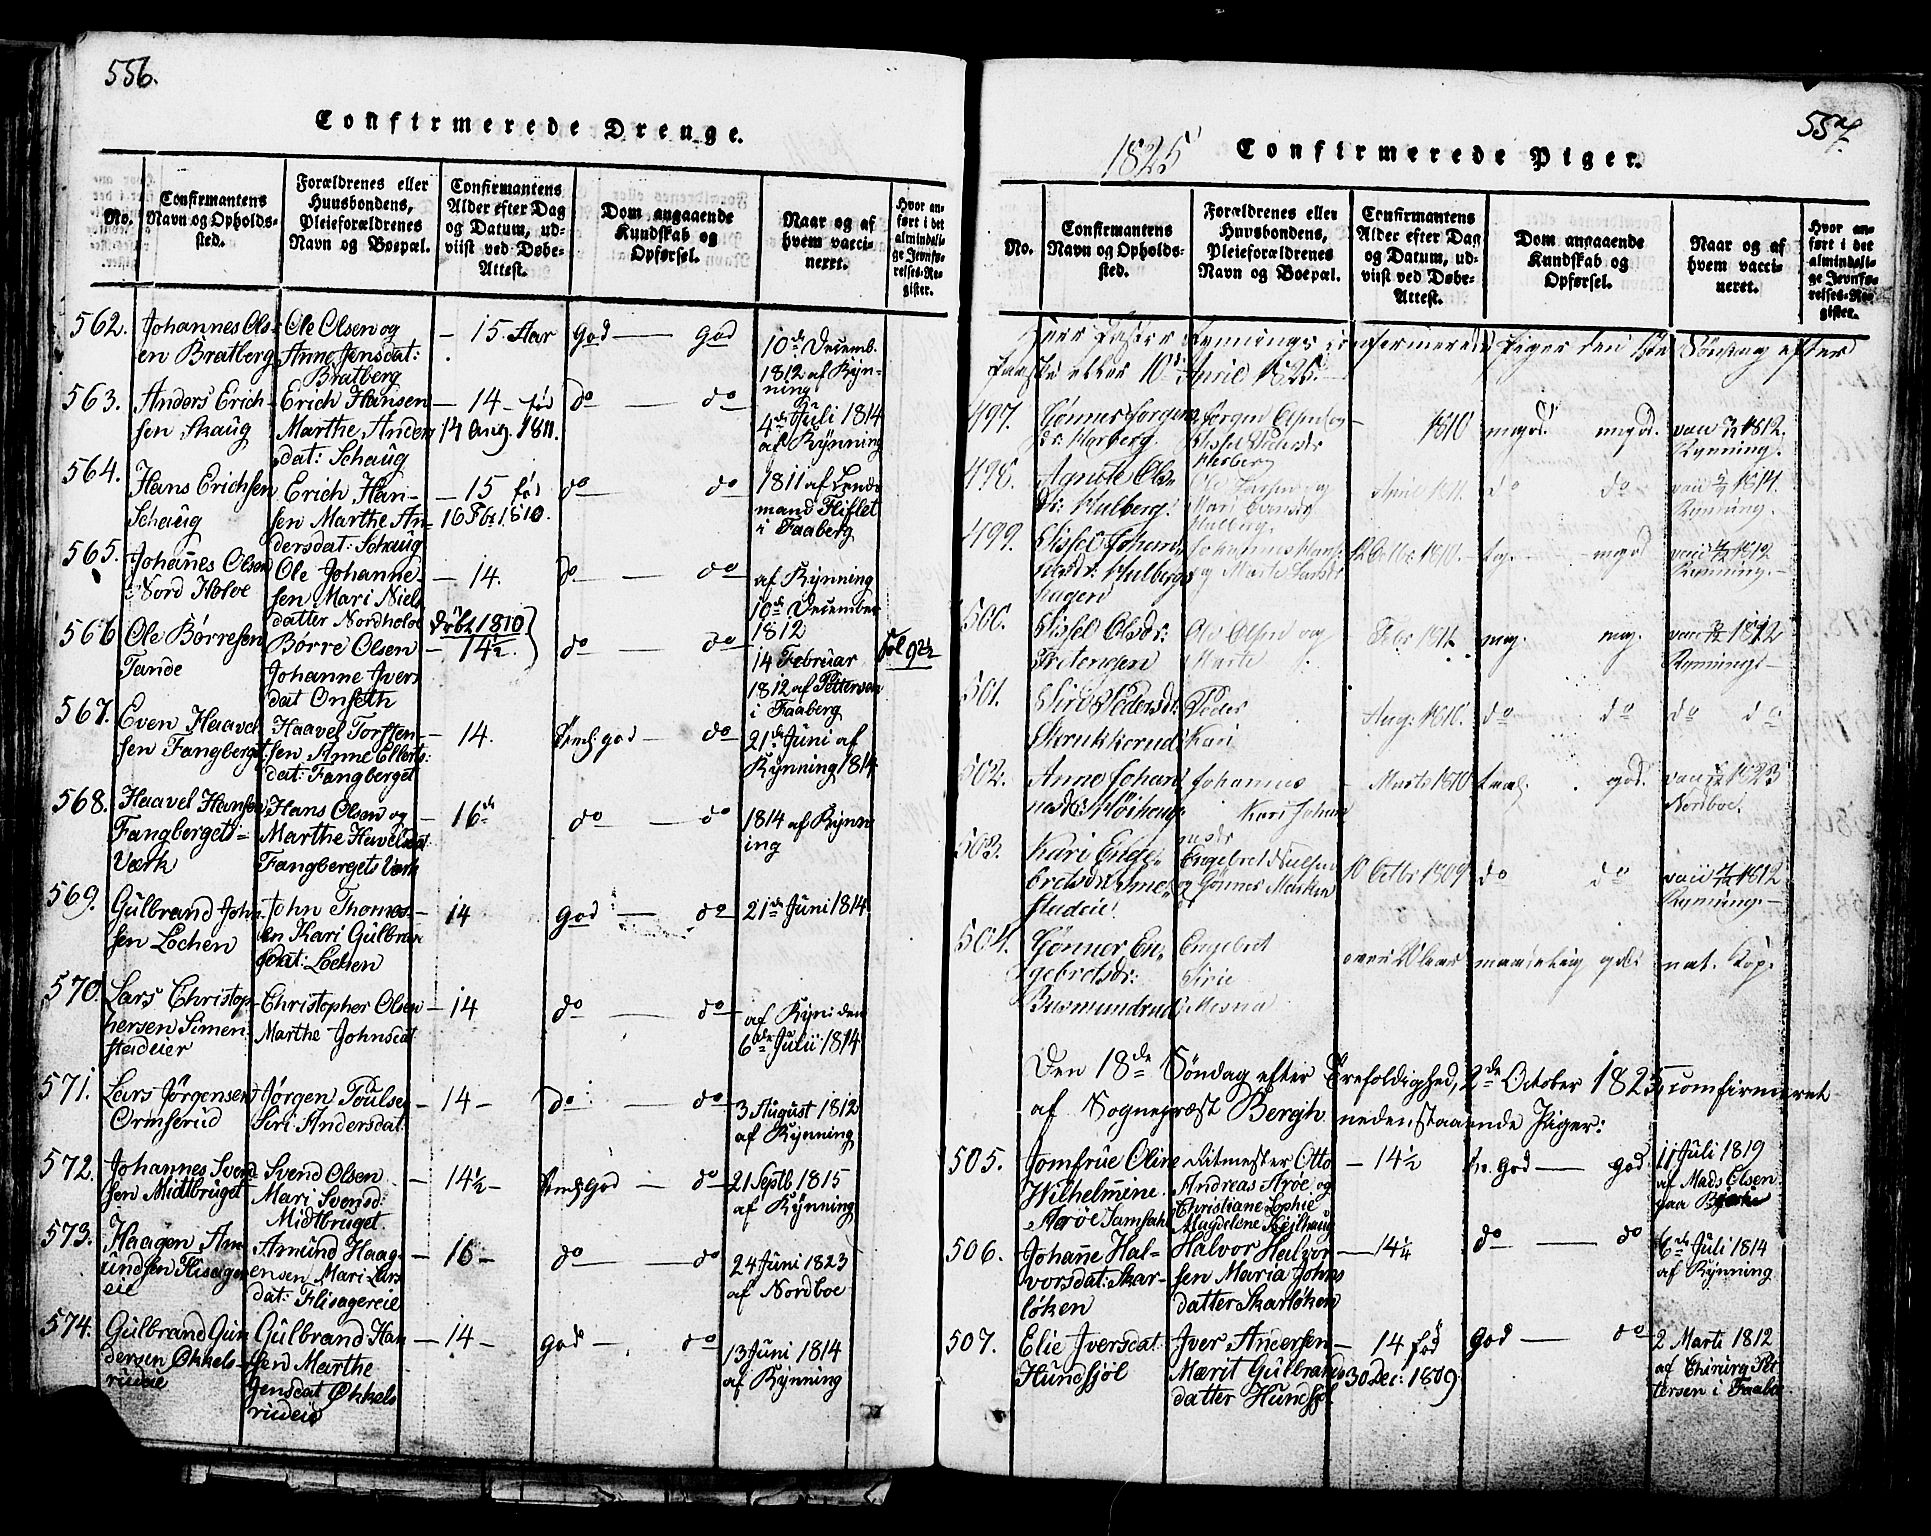 556.
Confirmerede Drenge.
No.
Confirmantens
Navn og Opholds-
sted.
Forældrenes eller
Huusbondens,
Pleieforældrenes
Navn og Boepæl.
Confirmantens
Alder efter Dag
og Datum, ud-
viist ved Døbe-
Attest.
Dom angaaende
Kundskab og
Opførsel.
Naar og af
hvem vacci-
neret.
Hvor an-
ført i det
almindeli-
ge Jevnfø-
relses-Re-
gister.
562.
Johannes Ols-
en Bratberg
Ole Olsen og
Anne Jensdat:
Bratberg
— 15 Aar
god — god
10de Decemb.
1812 af Rÿn-
ning
563.
Anders Erich-
sen Skaug
Erich Hansen
Marthe Anders
dat: Schaug
— 14 — fød
14 Aug. 1811.
do — do
4de Juli 1814
af Rÿnning
564.
Hans Erichsen
Schaug
Erich Han-
sen Marthe An-
dersdat: Schaug
— 15 fød
16 Fbr 1810.
do do
1811 af Lends
mand Fliflet
i Faaberg
565.
Johañes Olsen
Nord Holve
Ole Johanne-
sen Mari Niels
datter Nordholve
— 14.
do — do
af Rÿnning
10de December
1812
566
Ole Børresen
Tande
Børre Olsen
Johanne Ivers
dat Onseth
Døbt 1810
— 14½
do do
14 Februar
1812 af Pettersen
i Faaberg
Fol 92½
567.
Even Haavel
sen Fangberget
Haavel Torsten-
sen Anne Ellens
dat: Fangberget
— 14.
Temel: god — do
21de Juni af
Rÿnning 1814
568.
Haavel Hansen
Fangbergets-
Værk
Hans Olsen og
Marthe Havelsdat
Fangbergets Værk
— 16de
do — do
1814 af Rÿnn
ing
569.
Gulbrand John
sen Lochen
John Thomes-
en Kari Gulbran
dat: Lochen
14
god — do
21de Juni 1814
570.
Lars Christop-
hersen Simen
stadeier
Christopher Olsen
Marthe Johnsdat
— 14
do — do
af Rÿni den
6de Julii 1814
571.
Lars Jørgensen
Ormserud
Jørgen Poulse
Siri Andersdat
— 14 —
do — do
3 August 1812
af Rÿnning
572.
Johannes Svend
sen Midtbruget
Svend Olsen
Mari Svensd:
Midtbruget.
— 14½ —
Temel: god — do
21 Septb 1815
af Rÿnning
573.
Haagen Am
undsen Flisager
eie
Amund Haag-
ensen Mari Lars
dat: Flisagereie
— 16 —
do — do
24 Juni 1823
af Nordboe
574.
Gulbrand Gun
dersen Okkels-
rudeie
Gulbrand Han
sen Marthe
Jensdat Okkels
rudeie
— 14 —
god — do
13 Juni 1814
af Rÿnning
557.
1825
Confirmerede Piger.
No.
Confirmantens
Navn og Opholds-
sted.
Forældrenes eller
Huusbondens,
Pleieforældrenes
Navn og Boepæl.
Confirmantens
Alder efter Dag
og Datum, ud-
viist ved Døbe-
Attest.
Dom angaaende
Kundskab og
Opførsel.
Naar og af
hvem vacci-
neret.
Hvor an-
ført i det
almindeli-
ge Jevnfø-
relses-Re-
gister.
Herr Pastor Rynnings confirmerede Piger den 1ste Søndag efter
Paaske eller 10de April 1825.
497.
Gønner Jørgens
dr: Harberg.
Jørgen Olsen og
Sissel Pedersdr
Harberg
1810
mgod. mgod.
1812.
Rynning.
498.
Agnete Ols
dr: Hulberg.
Ole Larsen og
Mari
Hulberg.
April 1811.
do do
vacc 1814.
Rynning.
499.
Sissel Johan
nesdr: Hulbergs
hagen
Johannes Hans
og Marte Larsdr
12 Octbr 1810.
mgod
vacc 1812
Rynning.
500.
Sissel Olsdr:
Ole Olsen og
Marte
Febr 1811.
mg. mg.
vacc 1812
Rynning—
501.
Siri Pedersdr:
Skrukkerud
Peder
Kari
Aug: 1810.
do do
do do
502.
Anne Johan
nesdr: Høihaug
Johannes
Kari Johan
nesdr
Marts 1810
god.
vacc 1823
Nordboe.
503.
Kari Enge-
bretsdr
Engebret
og Gønner
10 Octbr 1809
do do
vacc 1812
Rynning.—
504.
Gønner En,
gebretsdr:
Rusmundrud
Engebret
Sirie
Mesna
maadelig god:
nat. Kop.
Den 18de Søndag efter Trefoldighed, 2de October 1825, comfirmeret
af Sognepræst Bergh nedenstaaende Piger:
505.
Jomfrue Oline
Wilhelmine
Arøe Samsahl
Ritmester Otto
Andreas Arøe og
Christiane Sophie
Magdelene Kejlhaug
— 14½
Fr. god — god
11 Juli 1819
af Mads Olsen
paa Bjerke
506.
Johañe Hal-
vorsdat: Skar-
løken
Halvor Halvor
sen Maria Johns
datter Skarløken
— 14¼
do — do
6de Juli 1814
af Rÿnning
507.
Elie Iversdat
Hundsjøl
Iver Andersen
Marit Gulbrands
datter Hundsjøl
— 14 fød
30 Dec: 1809
god — do
2 Marti 1812
af Chirurg Pet
tersen i Faabe